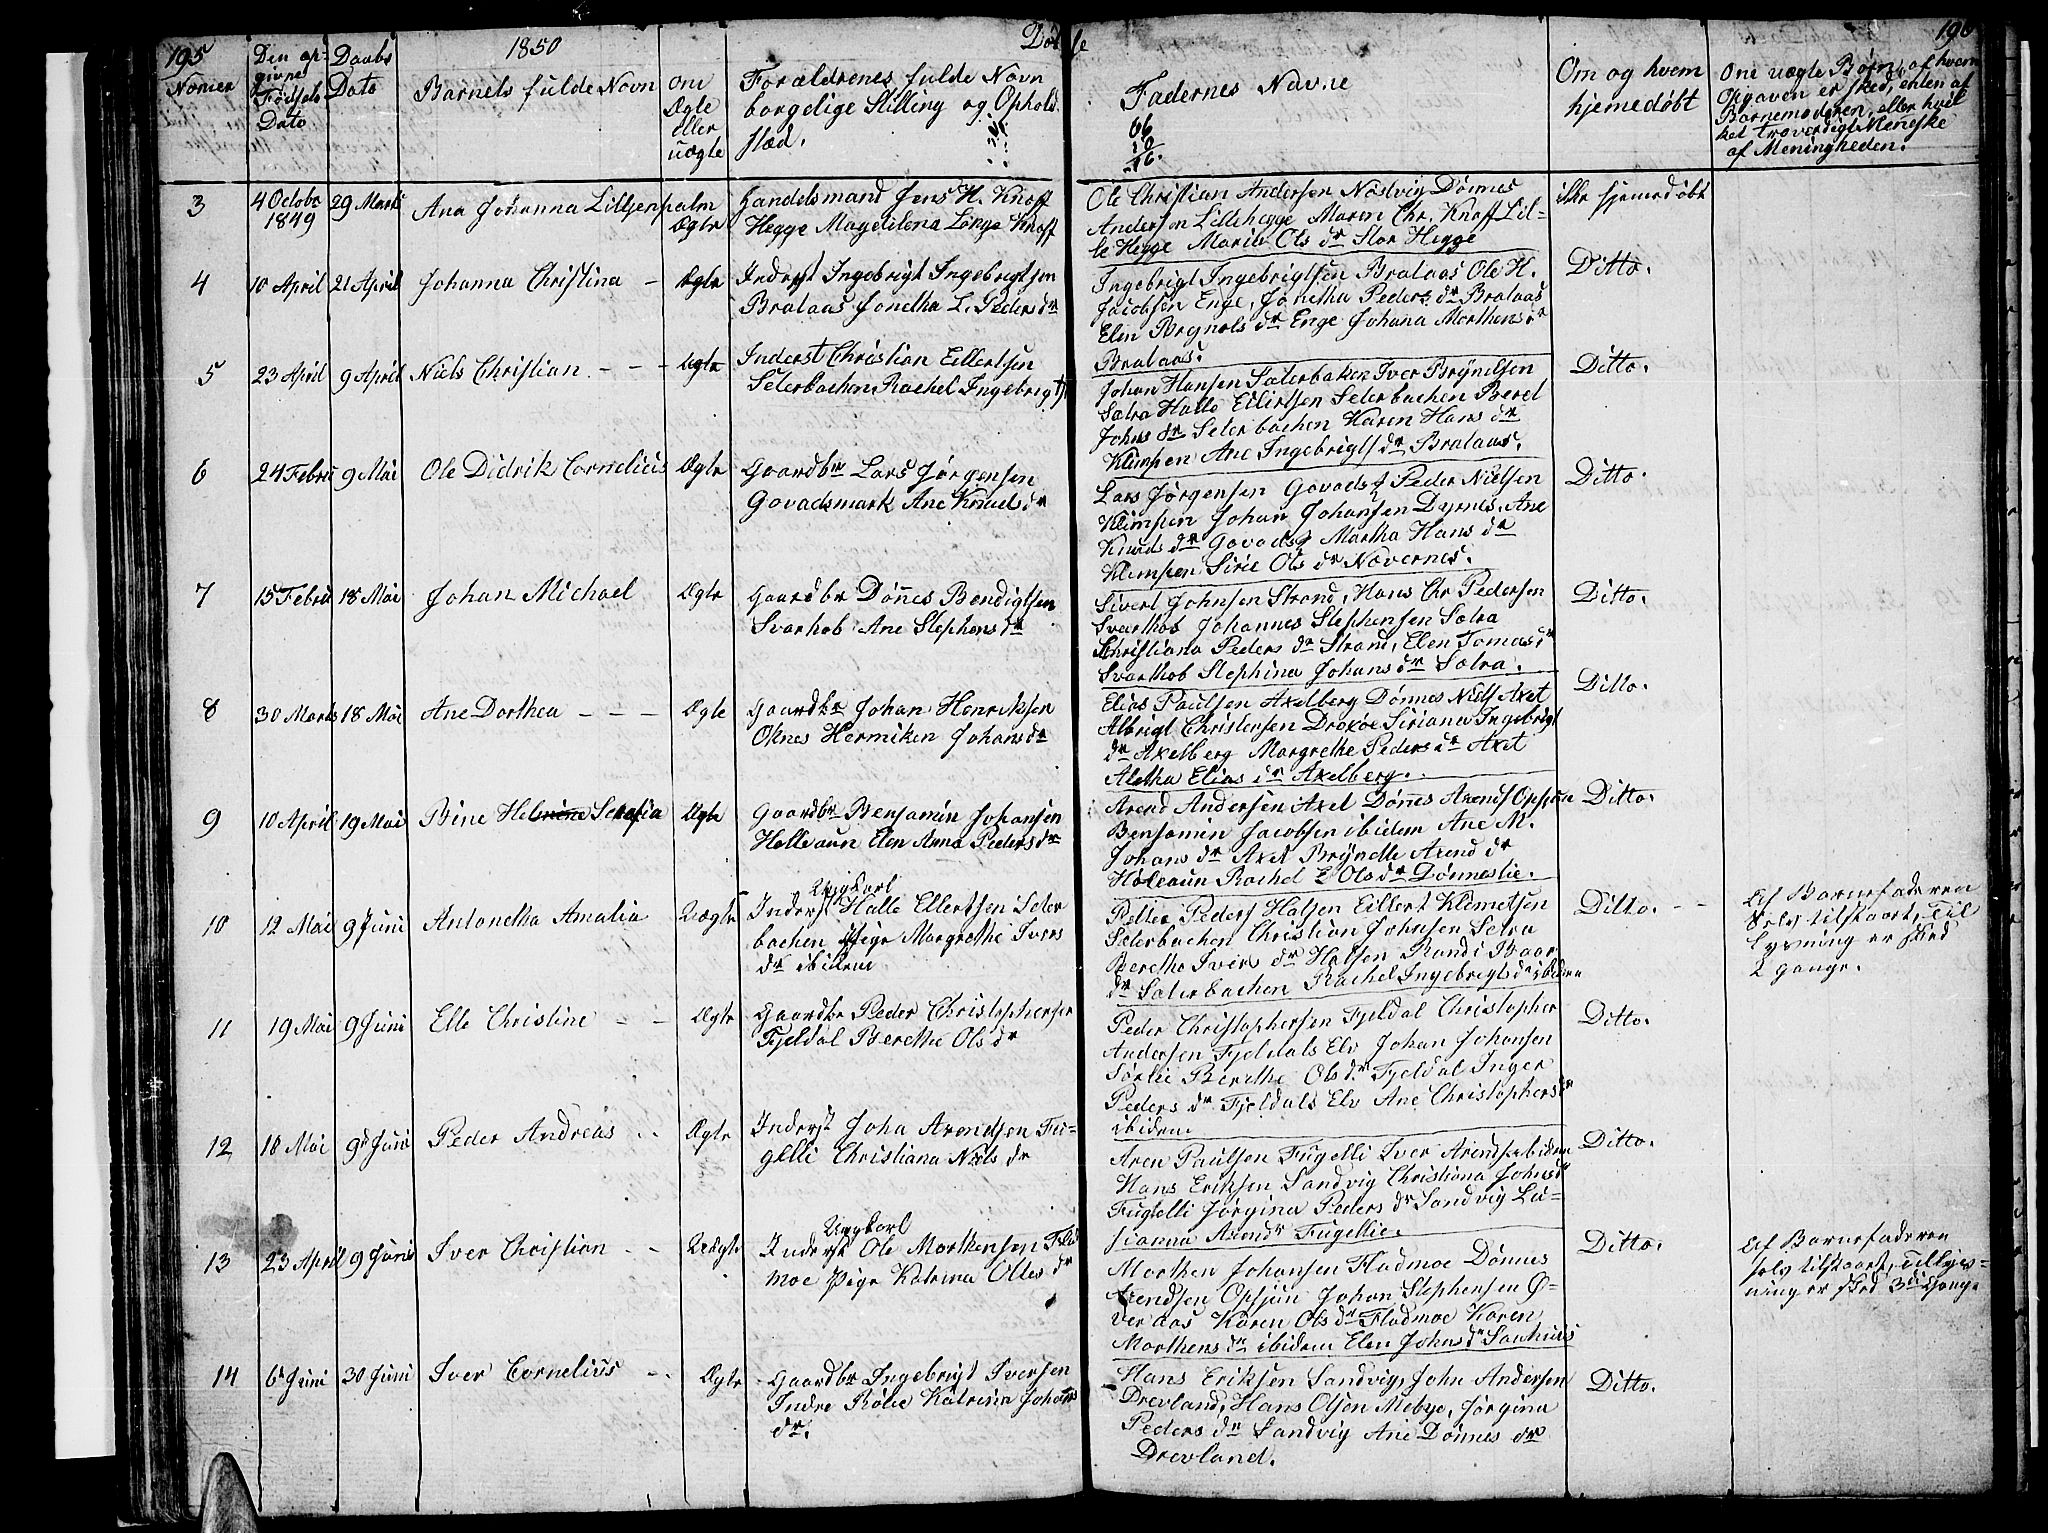 195 1850 Døbte 196
Nomer
Den op-
givne
Fødsels
Dato
Daabs
Dato
Barnets fulde Navn
om
Ægte
eller
uægte
Forældrenes fulde Navn
borgelige Stilling og Ophold
stæd.
Fadernes Navne
66
10
76.
Om og hvem
hjemedøbt
Om uægte Børn, af hvem
Opgaven er sked, enten af
Barnemoderen, eller hvil
ket troværdigt Meneske
af Meningheden.
3 4 Octobr 1849 29 Marts Ana Johanna Lillienpalm Ægte
Handelsmand Jens H. Knoff
Hegge Magdelena Lønge Knoff
Ole Christian Andersen Nordvig Dønnes
Andersen Lillehegge Maren Chr. Knoff Lil-
le Hegge Marie Ols dr Stor Hegge
ikke hjemedøbt
4 10 April 21 April Johanna Christina - Ægte
Inderst Ingebrigt Ingebrigtsen
Brataas Jonetha L. Peders dr
Ingebrigt Ingebrigtsen Brataas Ole H.
Jacobsen Enge, Jonetha Peders dr Brataas
Elen Brynels dr Enge Johana Morthens dr
Brataas.
Ditto.
5 23 April 9 April Niels Christian - - - Ægte
Inderst Christian Eillertsen
Seterbachen Rachel Ingebrigts
Johan Hansen Sæterbaken Iver Brÿnelsen
Sætra Halle Eilertsen Seterbachen Beret
Johns dr Seterbachen Karen Hans dr
Klimpen Ane Ingebrigts dr Brataas.
Ditto.
6 24 Febru 9 Mai Ole Didrik Cornelius Ægte
Gaardbr Lars Jørgensen
Govadsmark Ane Knuds dr
Lars Jørgensen Govads Peder Nielsen
Klimpen Johan Johansen Dyrnes, Ane
Knuds dr Govads Martha Hans dr
Klimpen Sirie Ols dr Navernes.
Ditto.
7 15 Febru 18 Mai Johan Michael Ægte
Gaardbr Dønnes Bendigtsen
Svarthob Ane Stephens dr
Sivert Johnsen Strand, Hans Chr Pedersen
Svarthob Johannes Stephensen Sætra
Christiana Peders dr Strand, Elen Tomas dr
Svarthob Stephina Johans dr Sætra.
Ditto.
8 30 Marts 18 Mai Ane Dorthea - - - Ægte
Gaardbr Johan Henriksen
Oknes Hermiken Johans dr
Elias Paulsen Axelberg Dønnes Niels Axet
Albrigt Christensen Drøxøe Siriana Ingebrigt
dr Axelberg Margrethe Peders dr Axet
Aletha Elias dr Axelberg.
Ditto.
9 10 April 19 Mai Bine Helmine Serafia Ægte
Gaardbr Benjamin Johansen
Holleaun Elen Anna Peders dr
Arend Andersen Axel Dønnes Arends Opsjøn
Benjamin Jacobsen ibidem Ane M.
Johans dr Axel Brÿnelle Arend dr
Holeaun Rachel Ols dr Dønneslie.
Ditto.
10 12 Mai 9 Juni Antonetha Amalia Uægte
Ungkarl
Inderst Halle Ellertsen Seter
bachen Pige Margrethe Ivers
dr ibidem
Petter Peders Halsen Eillert Klemetsen
Seterbachen Christian Johnsen Setra
Berethe Ivers dr Halsen Randi Baar
dr Sæterbachen Rachel Ingebrigts dr ibidem
Ditto. - -
Af Barnefaderen
Selv tilstaart, Til
lysning er sked
2 gange.
11 19 Mai 9 Juni Elle Christine - - Ægte
Gaardbr Peder Christophersen
Fjeldal Berethe Ols dr
Peder Christophersen Fjeldal Christopher
Andersen Fjeldals Elv Johan Johansen
Sørlie Berethe Ols dr Fjeldal Inger
Peders dr Fjeldals Elv Ane Christophers dr
ibidem
Ditto.
12 18 Mai 9 Juni Peder Andreas - - Ægte
Inderst Joha Arendsen Fu-
gelli Christiana Niels dr
Aren Paulsen Fugelli Iver Arends ibidem
Hans Eriksen Sandvig Christiana Johns dr
Fugelli Jørgina Peders dr Sandvig Lu-
sianna Arends dr Fugellie.
Ditto.
13 23 April 9 Juni Iver Christian - - Uægte
Ungkarl
Inderst Ole Morthensen Flad
moe Pige Katrina Olles dr
Morthen Johansen Fladmoe Dønnes
Arendsen Opsjun Johan Stephensen Ø-
veraas Karen Ols dr Fladmoe Karen
Morthens dr ibidem Elen Johns dr Sanhuis
Ditto.
Af Barnefaderen
selv tilstaart, Tillys-
ning er sked 3di gang.
14 6 Juni 30 Juni Iver Cornelius - - Ægte
Gaardbr Ingebrigt Iversen
Indre Rølie Katrina Johans
dr.
Hans Eriksen Sandvig, John Andersen
Drevland, Hans Olsen Mebye, Jørgina
Peders dr Sandvig Ane Dønnes dr
Drevland.
Ditto.